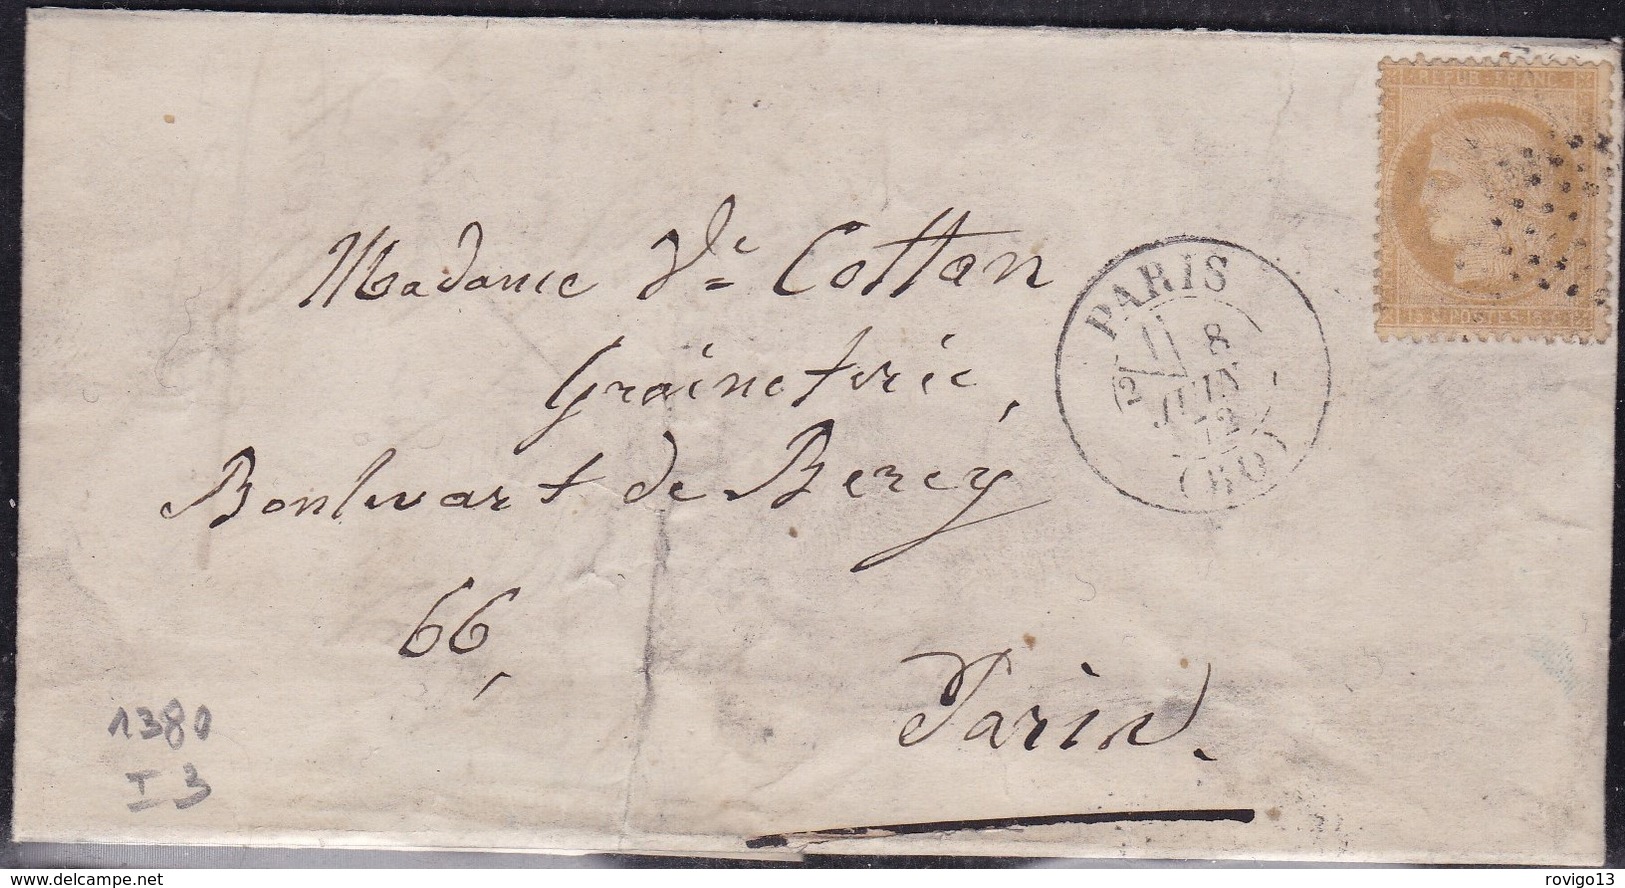 REPUB·FRANC
15 c. POSTES 15 c.
Madame Vve Cottan
Graineterie,
Boulevart de Bercy
66,
Paris.
PARIS
8
JUIN
72
(60)
1380
I 3
www.delcampe.net
rovigo13